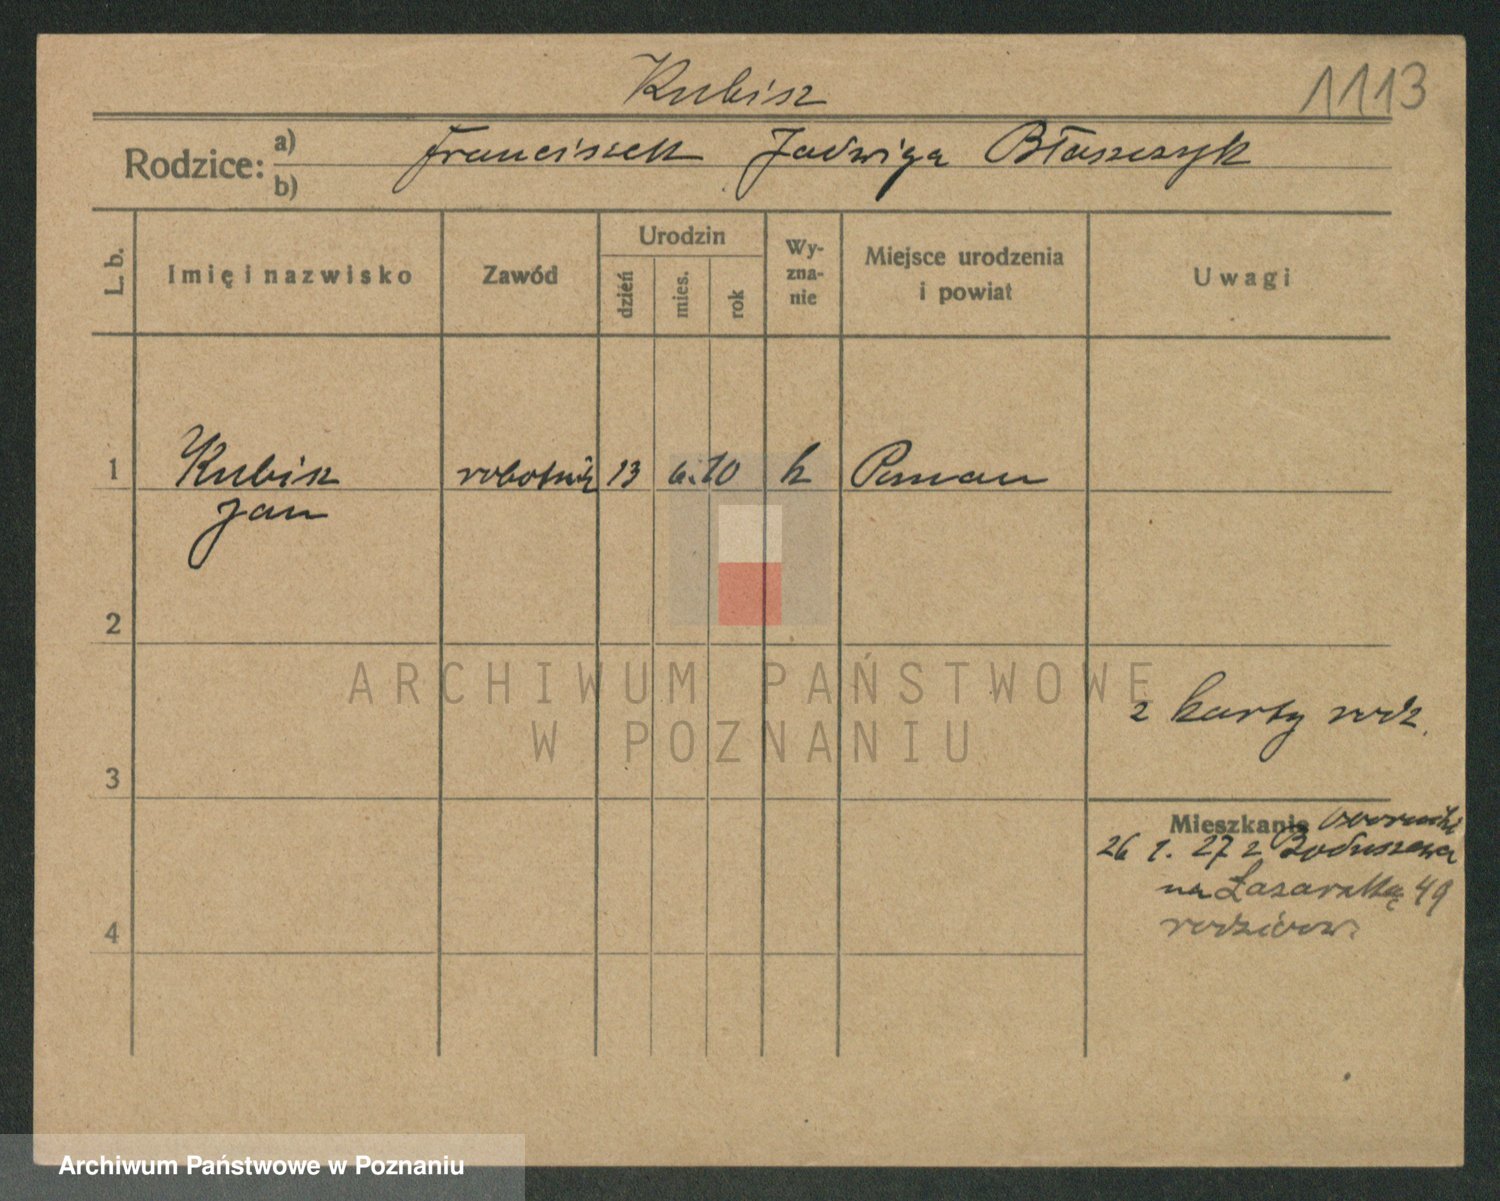 Kubisz
1113
Rodzice: a) Franciszek Jadwiga Błaszczyk
b)
L. b.
Imię i nazwisko
Zawód
Urodzin
dzień
mies.
rok
Wy-
zna-
nie
Miejsce urodzenia
i powiat
Uwagi
1 Kubisz robotnik 13 6. 10 k Poznań
Jan
2
ARCHIWUM PAŃSTWOWE
W POZNANIU
z karty rodz.
3
Mieszkanie
26 1. 27 z Boduszewa
na Łazarską 49
rodziców.
4
Archiwum Państwowe w Poznaniu